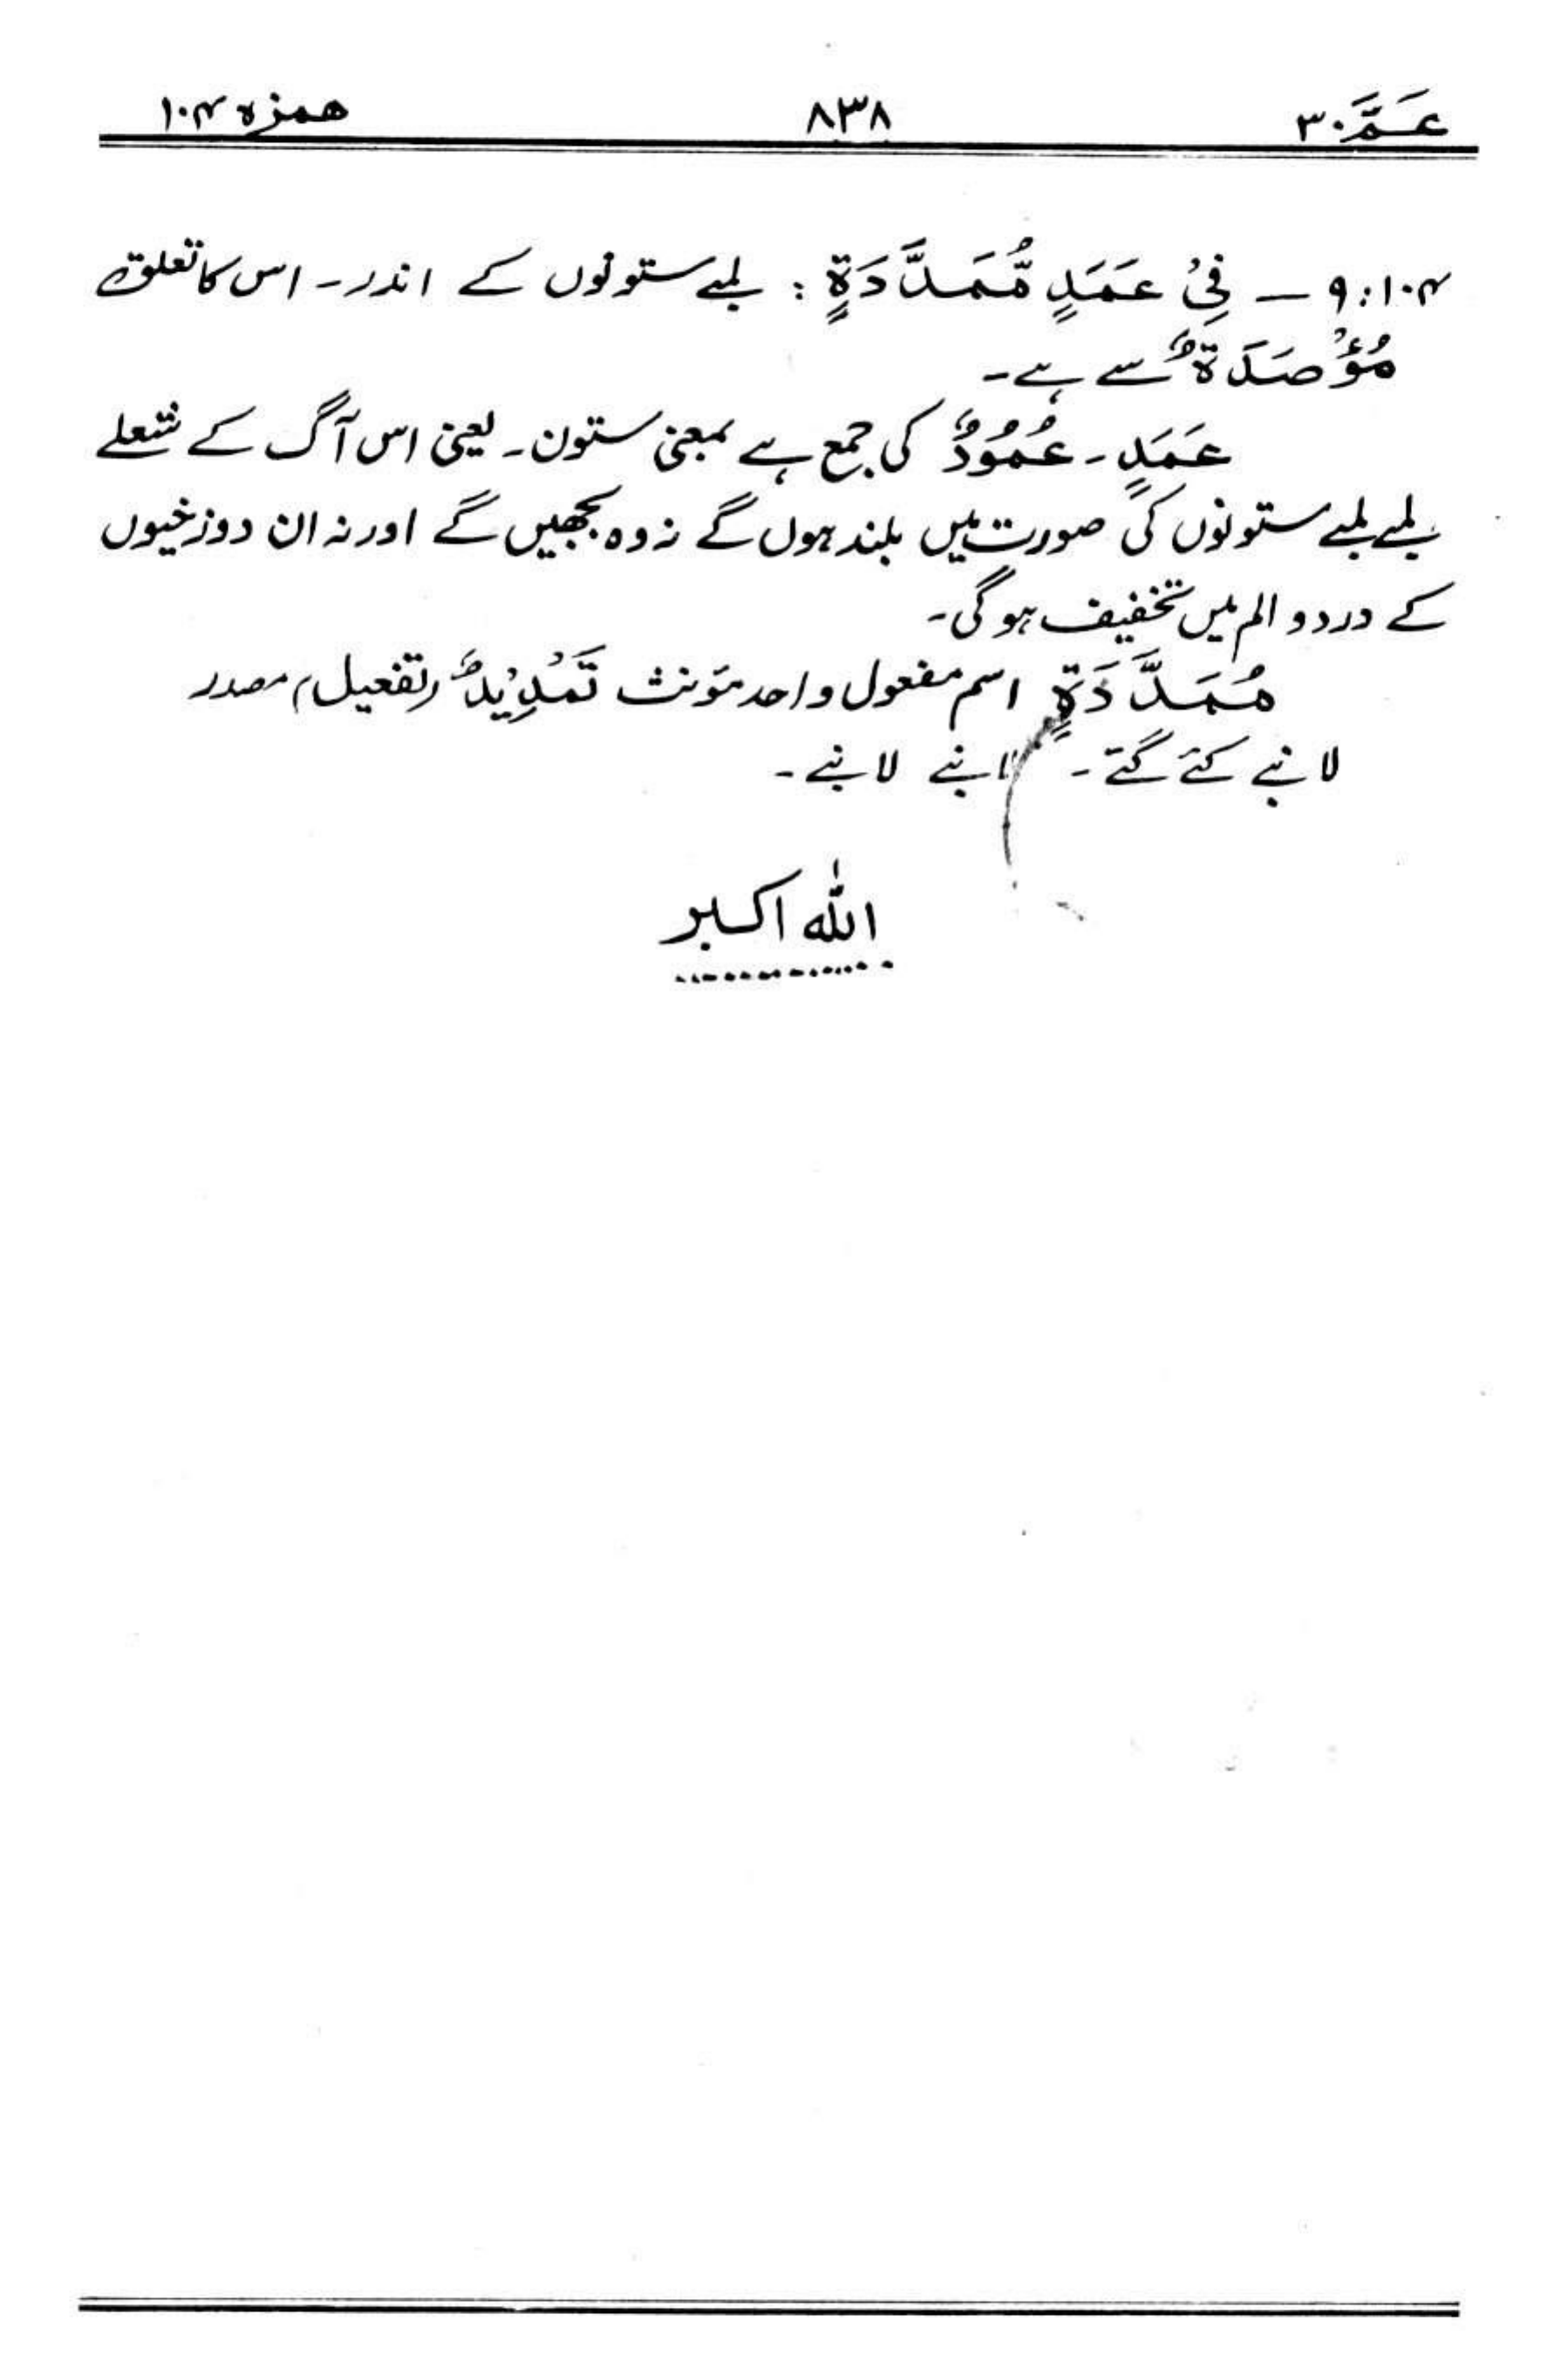 عَمَّ ۳۰ ۸۳۸ ھمزہ ۱۰۴
۱۰۴:۹ — فِیْ عَمَدٍ مُّمَدَّدَةٍ : لمبے ستونوں کے اندر۔ اس کا تعلق
مُؤْصَدَةٌ سے ہے۔
عَمَدٍ۔ عُمُوْدٌ کی جمع ہے بمعنی ستون۔ یعنی اس آگ کے شعلے
لمبے لمبے ستونوں کی صورت میں بلند ہوں گے نہ وہ بجھیں گے اور نہ ان دوزخیوں
کے درد و الم میں تخفیف ہوگی۔
مُمَدَّدَةٍ اسم مفعول واحد مؤنث تَمْدِیْدٌ (تفعیل) مصدر
لانبے کئے گئے۔ لانبے لانبے۔
اللہ اکبر